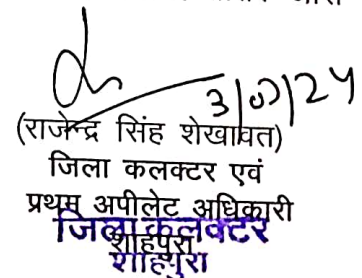 3/07/24
(राजेन्द्र सिंह शेखावत)
जिला कलक्टर एवं
प्रथम अपीलेट अधिकारी
जिला कलक्टर
शाहपुरा
शाहपुरा